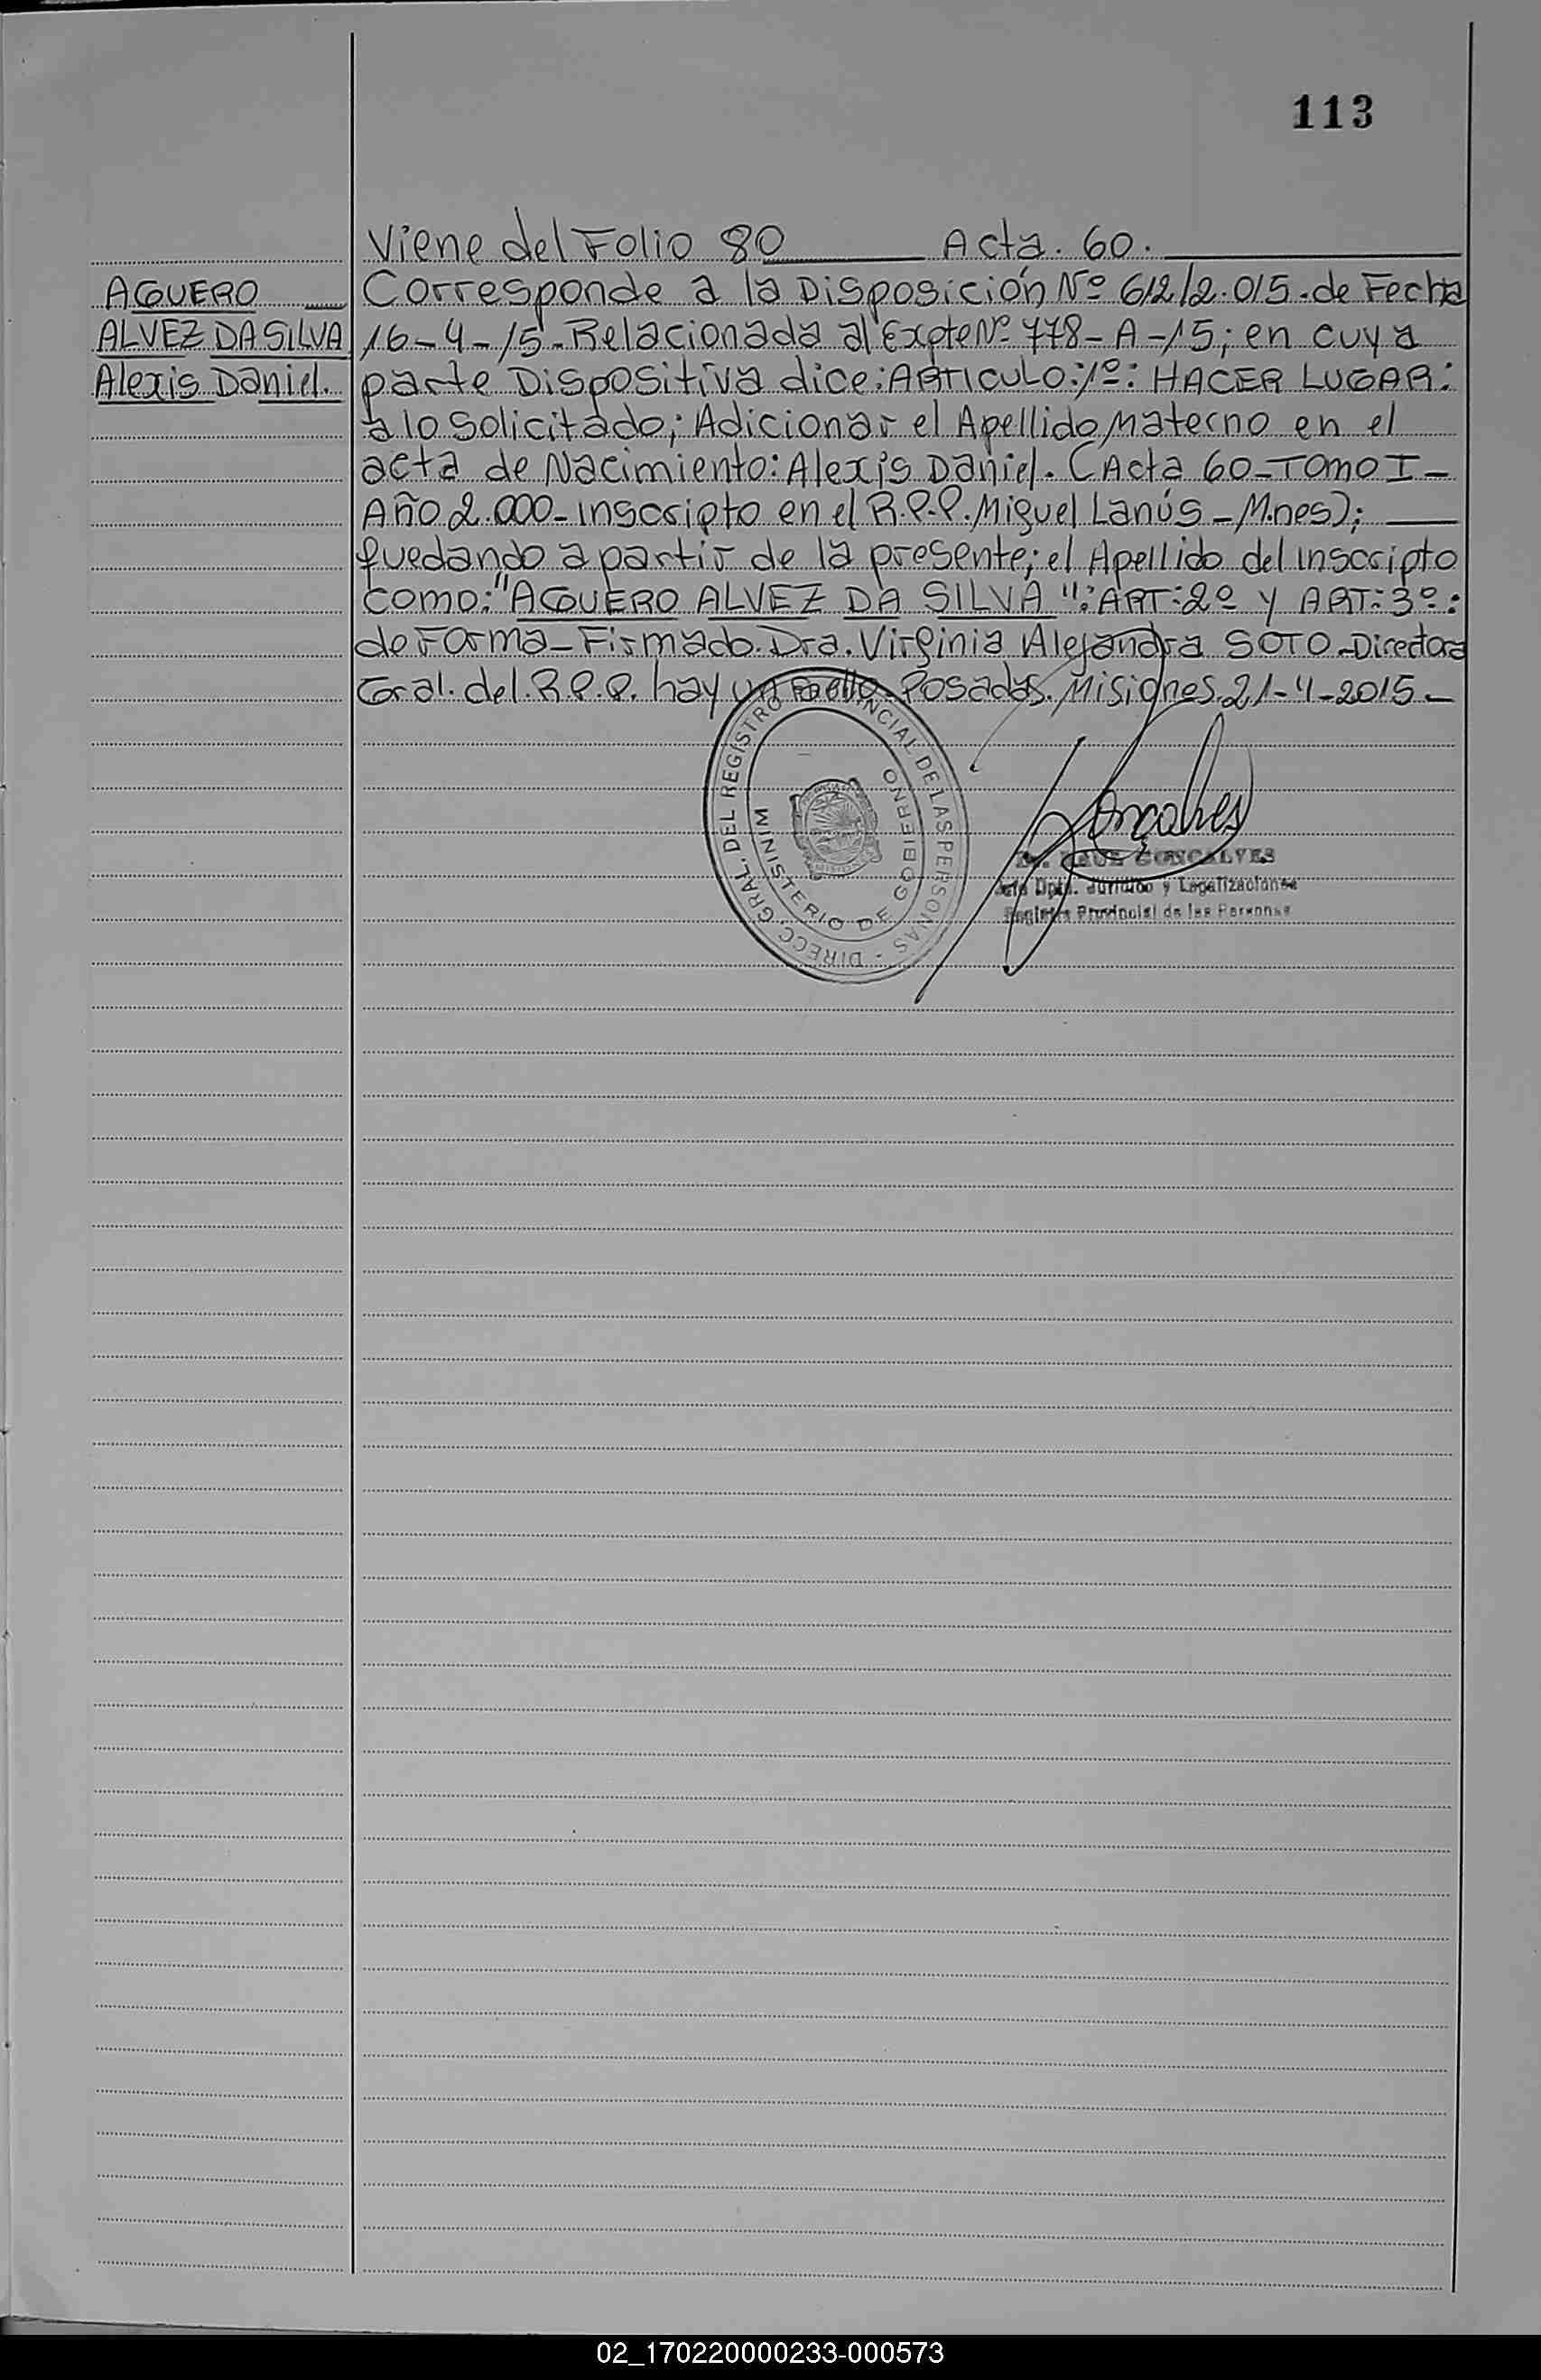 113
Viene del Folio 80 ______ Acta. 60. ______
AGUERO
ALVEZ DA SILVA
Alexis Daniel.
Corresponde a la Disposición Nº 612/2.015.de Fecha
16-4-15.-Relacionada al Expte Nº 778-A-15; en cuya
parte Dispositiva dice: ARTICULO: 1º: HACER LUGAR:
a lo Solicitado; Adicionar el Apellido Materno en el
acta de Nacimiento: Alexis Daniel. (Acta 60-Tomo I-
Año 2.000-inscripto en el R.P.P. Miguel Lanús-M.nes);
quedando a partir de la presente; el Apellido del inscripto
como: "AGUERO ALVEZ DA SILVA": ART:2º Y ART:3º:
de Forma-Firmado. Dra. Virginia Alejandra SOTO-Directora
Gral. del. R.P.P. hay un sello. Posadas. Misiones. 21-4-2015.-
DIRECC. GRAL. DEL REGISTRO PROVINCIAL DE LAS PERSONAS -
MINISTERIO DE GOBIERNO
Gonçalves
GONCALVES
Jefe Dpto. Jurídico y Legalizaciones
Registro Provincial de las Personas
02_170220000233-000573